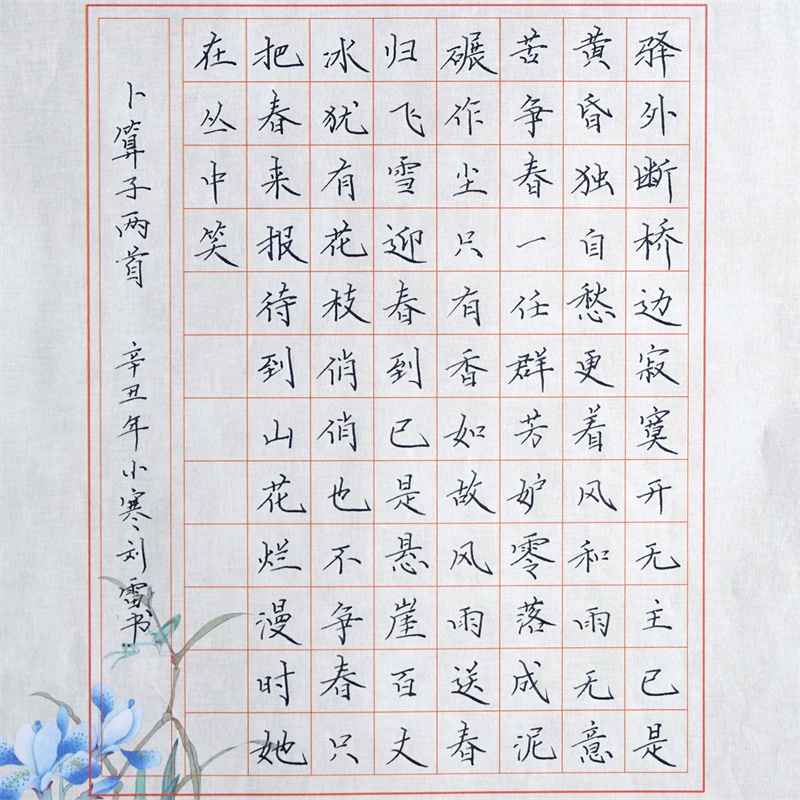 驿外断桥边寂寞开无主已是
黄昏独自愁更着风和雨无意
苦争春一任群芳妒零落成泥
碾作尘只有香如故风雨送春
归飞雪迎春到已是悬崖百丈
冰犹有花枝俏俏也不争春只
把春来报待到山花烂漫时她
在丛中笑
卜算子两首 辛丑年小寒刘雷书